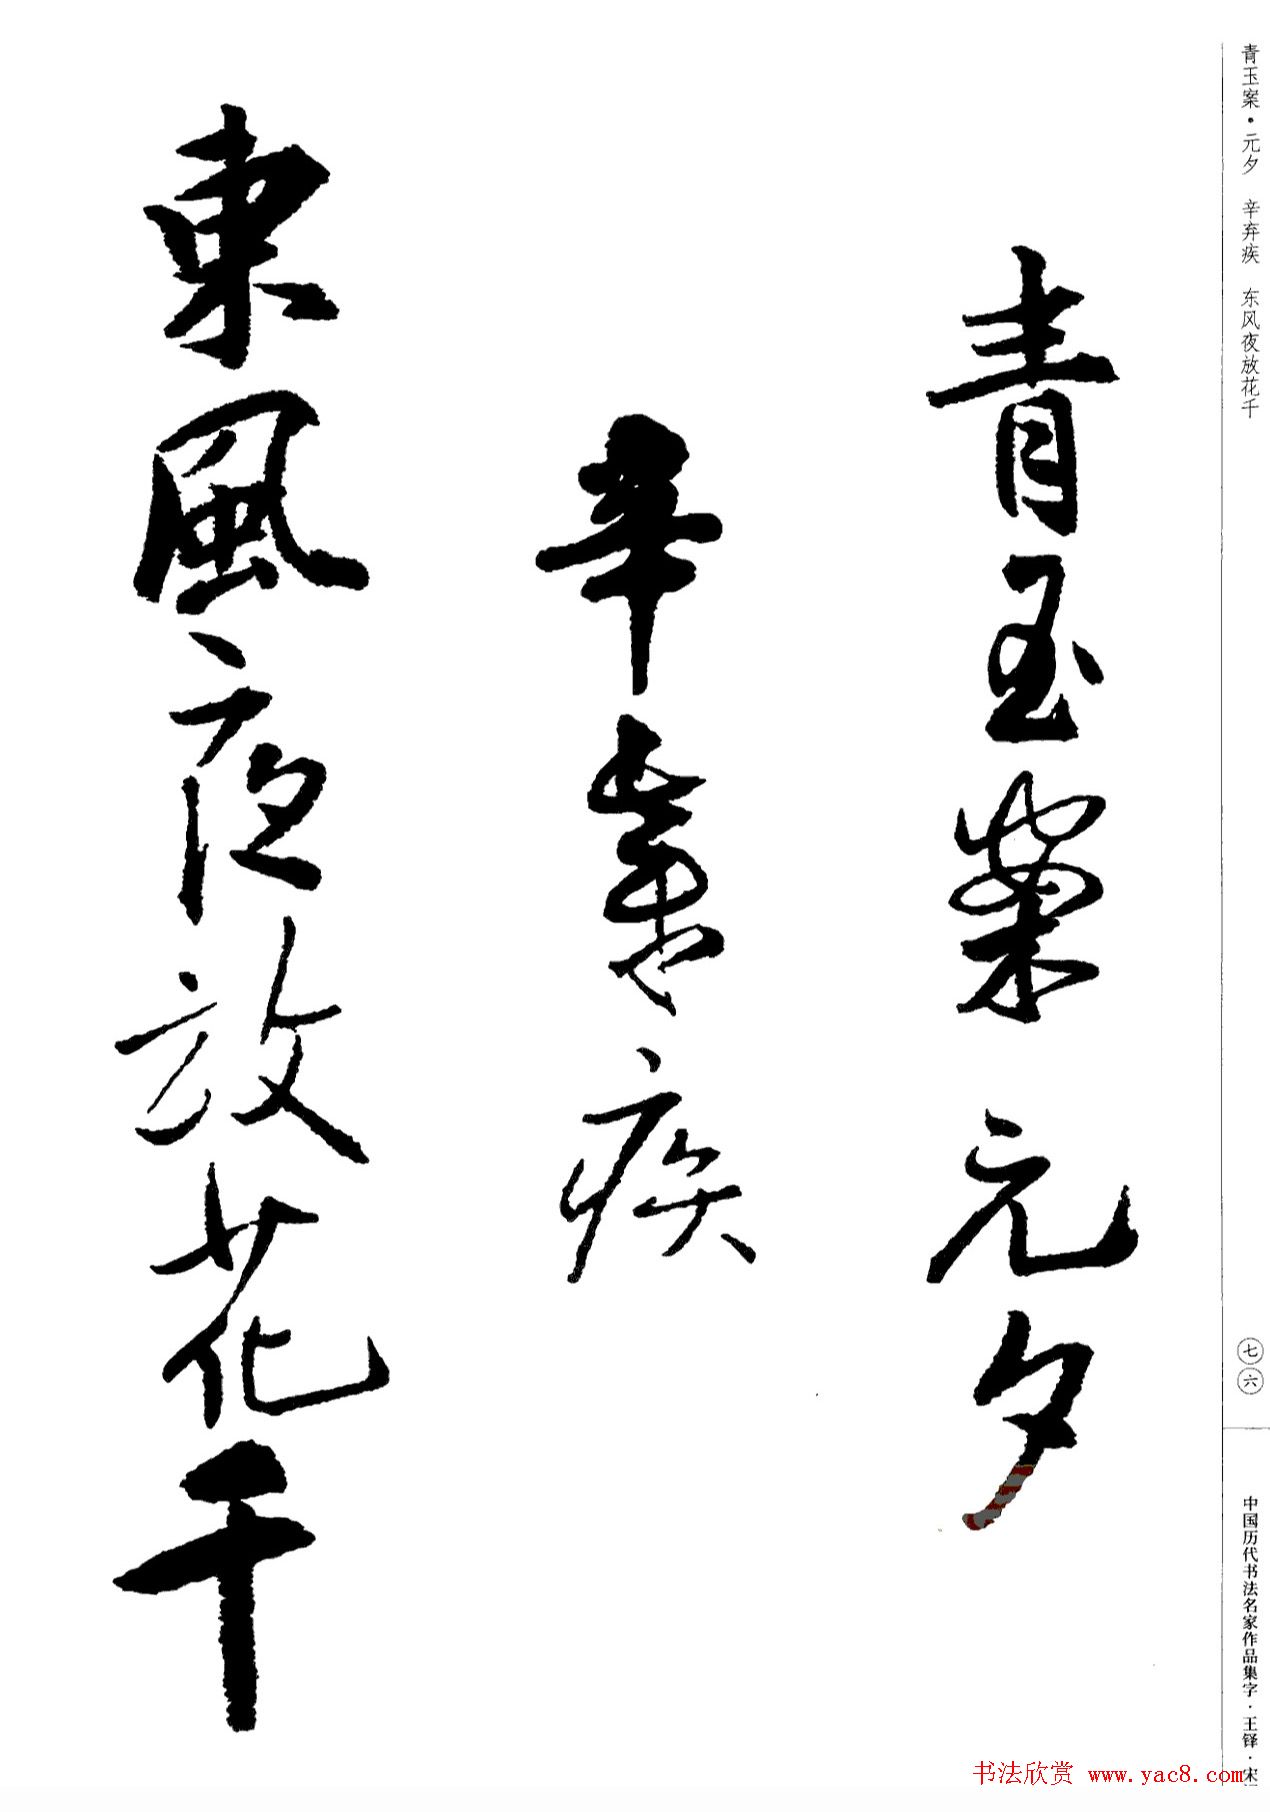 青玉案·元夕 辛弃疾 东风夜放花千
七六
中国历代书法名家作品集字·王铎·宋
青玉案元夕
辛棄疾
東風夜放花千
书法欣赏 www.yac8.com